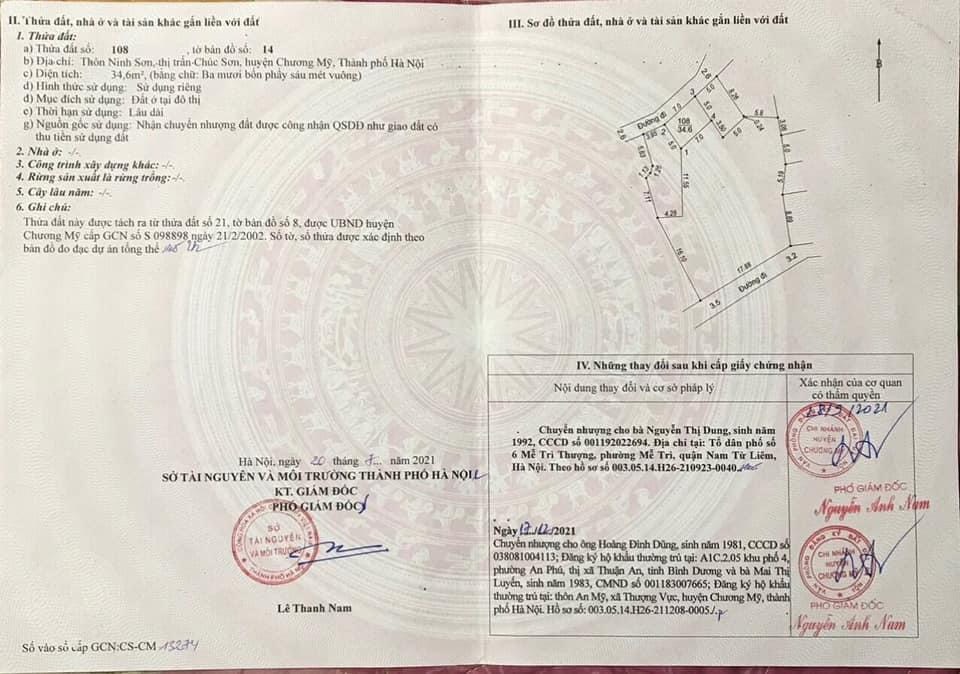 II. Thửa đất, nhà ở và tài sản khác gắn liền với đất
1. Thửa đất:
a) Thửa đất số: 108 , tờ bản đồ số: 14
b) Địa chỉ: Thôn Ninh Sơn, thị trấn Chúc Sơn, huyện Chương Mỹ, Thành phố Hà Nội
c) Diện tích: 34,6m², (bằng chữ: Ba mươi bốn phẩy sáu mét vuông)
d) Hình thức sử dụng: Sử dụng riêng
đ) Mục đích sử dụng: Đất ở tại đô thị
e) Thời hạn sử dụng: Lâu dài
g) Nguồn gốc sử dụng: Nhận chuyển nhượng đất được công nhận QSDĐ như giao đất có
thu tiền sử dụng đất
2. Nhà ở: -/-
3. Công trình xây dựng khác: -/-
4. Rừng sản xuất là rừng trồng:-/-
5. Cây lâu năm: -/-
6. Ghi chú:
Thửa đất này được tách ra từ thửa đất số 21, tờ bản đồ số 8, được UBND huyện
Chương Mỹ cấp GCN số S 098898 ngày 21/2/2002. Số tờ, số thửa được xác định theo
bản đồ đo đạc dự án tổng thể
Hà Nội, ngày 20 tháng 7 năm 2021
SỞ TÀI NGUYÊN VÀ MÔI TRƯỜNG THÀNH PHỐ HÀ NỘI
KT. GIÁM ĐỐC
PHÓ GIÁM ĐỐC
SỞ
TÀI NGUYÊN
VÀ MÔI TRƯỜNG
THÀNH PHỐ HÀ NỘI
Lê Thanh Nam
Số vào sổ cấp GCN:CS-CM 13274
III. Sơ đồ thửa đất, nhà ở và tài sản khác gắn liền với đất
B
2.6
3
5.0
8.26
7.0
Đường đi
108
34.6
4
5.0
3.50
5.0
5.8
0.24
3.08
2.6
3.95
2
7.0
1
5.0
6.83
1.26
1.12
7.11
11.55
4.28
5.19
8.89
16.10
17.88
3.5
Đường đi
3.2
IV. Những thay đổi sau khi cấp giấy chứng nhận
Nội dung thay đổi và cơ sở pháp lý
Xác nhận của cơ quan
có thẩm quyền
28/9/2021
Chuyển nhượng cho bà Nguyễn Thị Dung, sinh năm
1992, CCCD số 001192022694. Địa chỉ tại: Tổ dân phố số
6 Mễ Trì Thượng, phường Mễ Trì, quận Nam Từ Liêm,
Hà Nội. Theo hồ sơ số 003.05.14.H26-210923-0040.
CHI NHÁNH
HUYỆN
CHƯƠNG MỸ
PHÓ GIÁM ĐỐC
Nguyễn Anh Nam
Ngày 17/12/2021
Chuyển nhượng cho ông Hoàng Đình Dũng, sinh năm 1981, CCCD số
038081004113; Đăng ký hộ khẩu thường trú tại: A1C.2.05 khu phố 4,
phường An Phú, thị xã Thuận An, tỉnh Bình Dương và bà Mai Thị
Luyến, sinh năm 1983, CMND số 001183007665; Đăng ký hộ khẩu
thường trú tại: thôn An Mỹ, xã Thượng Vực, huyện Chương Mỹ, thành
phố Hà Nội. Hồ sơ số: 003.05.14.H26-211208-0005./.
CHI NHÁNH
HUYỆN
CHƯƠNG MỸ
PHÓ GIÁM ĐỐC
Nguyễn Anh Nam